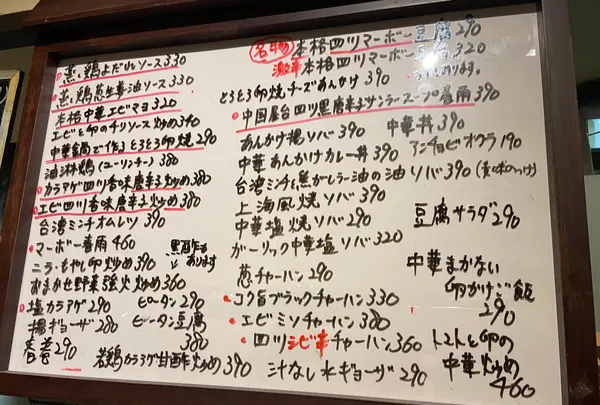 蒸し鶏よだれソース330
蒸し鶏葱生姜油ソース330
本格中華エビマヨ320
エビと卵のチリソース炒め340
中華鍋で作るとろとろ卵焼290
油淋鶏(ユーリンチー)380
カラアゲ四川香味唐辛子炒め380
エビ四川香味唐辛子炒め380
台湾ミンチオムレツ390
マーボー春雨460
黒酢もあります
ニラ・もやし卵炒め390
おまかせ野菜強火炒め360
塩カラアゲ290
揚ギョーザ280
春巻290
ピータン290
ピータン豆腐380
若鶏カラアゲ甘酢炒め390
名物 本格四川マーボー豆腐290
激辛 本格四川マーボー豆腐320
あります。
とろとろ卵焼チーズあんかけ390
中国屋台四川黒唐辛子サンラースープ春雨390
あんかけ揚ソバ390
中華丼390
中華あんかけカレー丼390
アンチョビオクラ190
台湾ミンチと焦がしラー油の油ソバ390
上海風焼ソバ390
中華塩焼ソバ290
ガーリック中華塩ソバ320
葱チャーハン290
コク旨ブラックチャーハン330
エビミソチャーハン380
四川シビ辛チャーハン360
汁なし水ギョーザ290
豆腐サラダ290
中華まかない
卵かけご飯
290
トマトと卵の
中華炒め
460